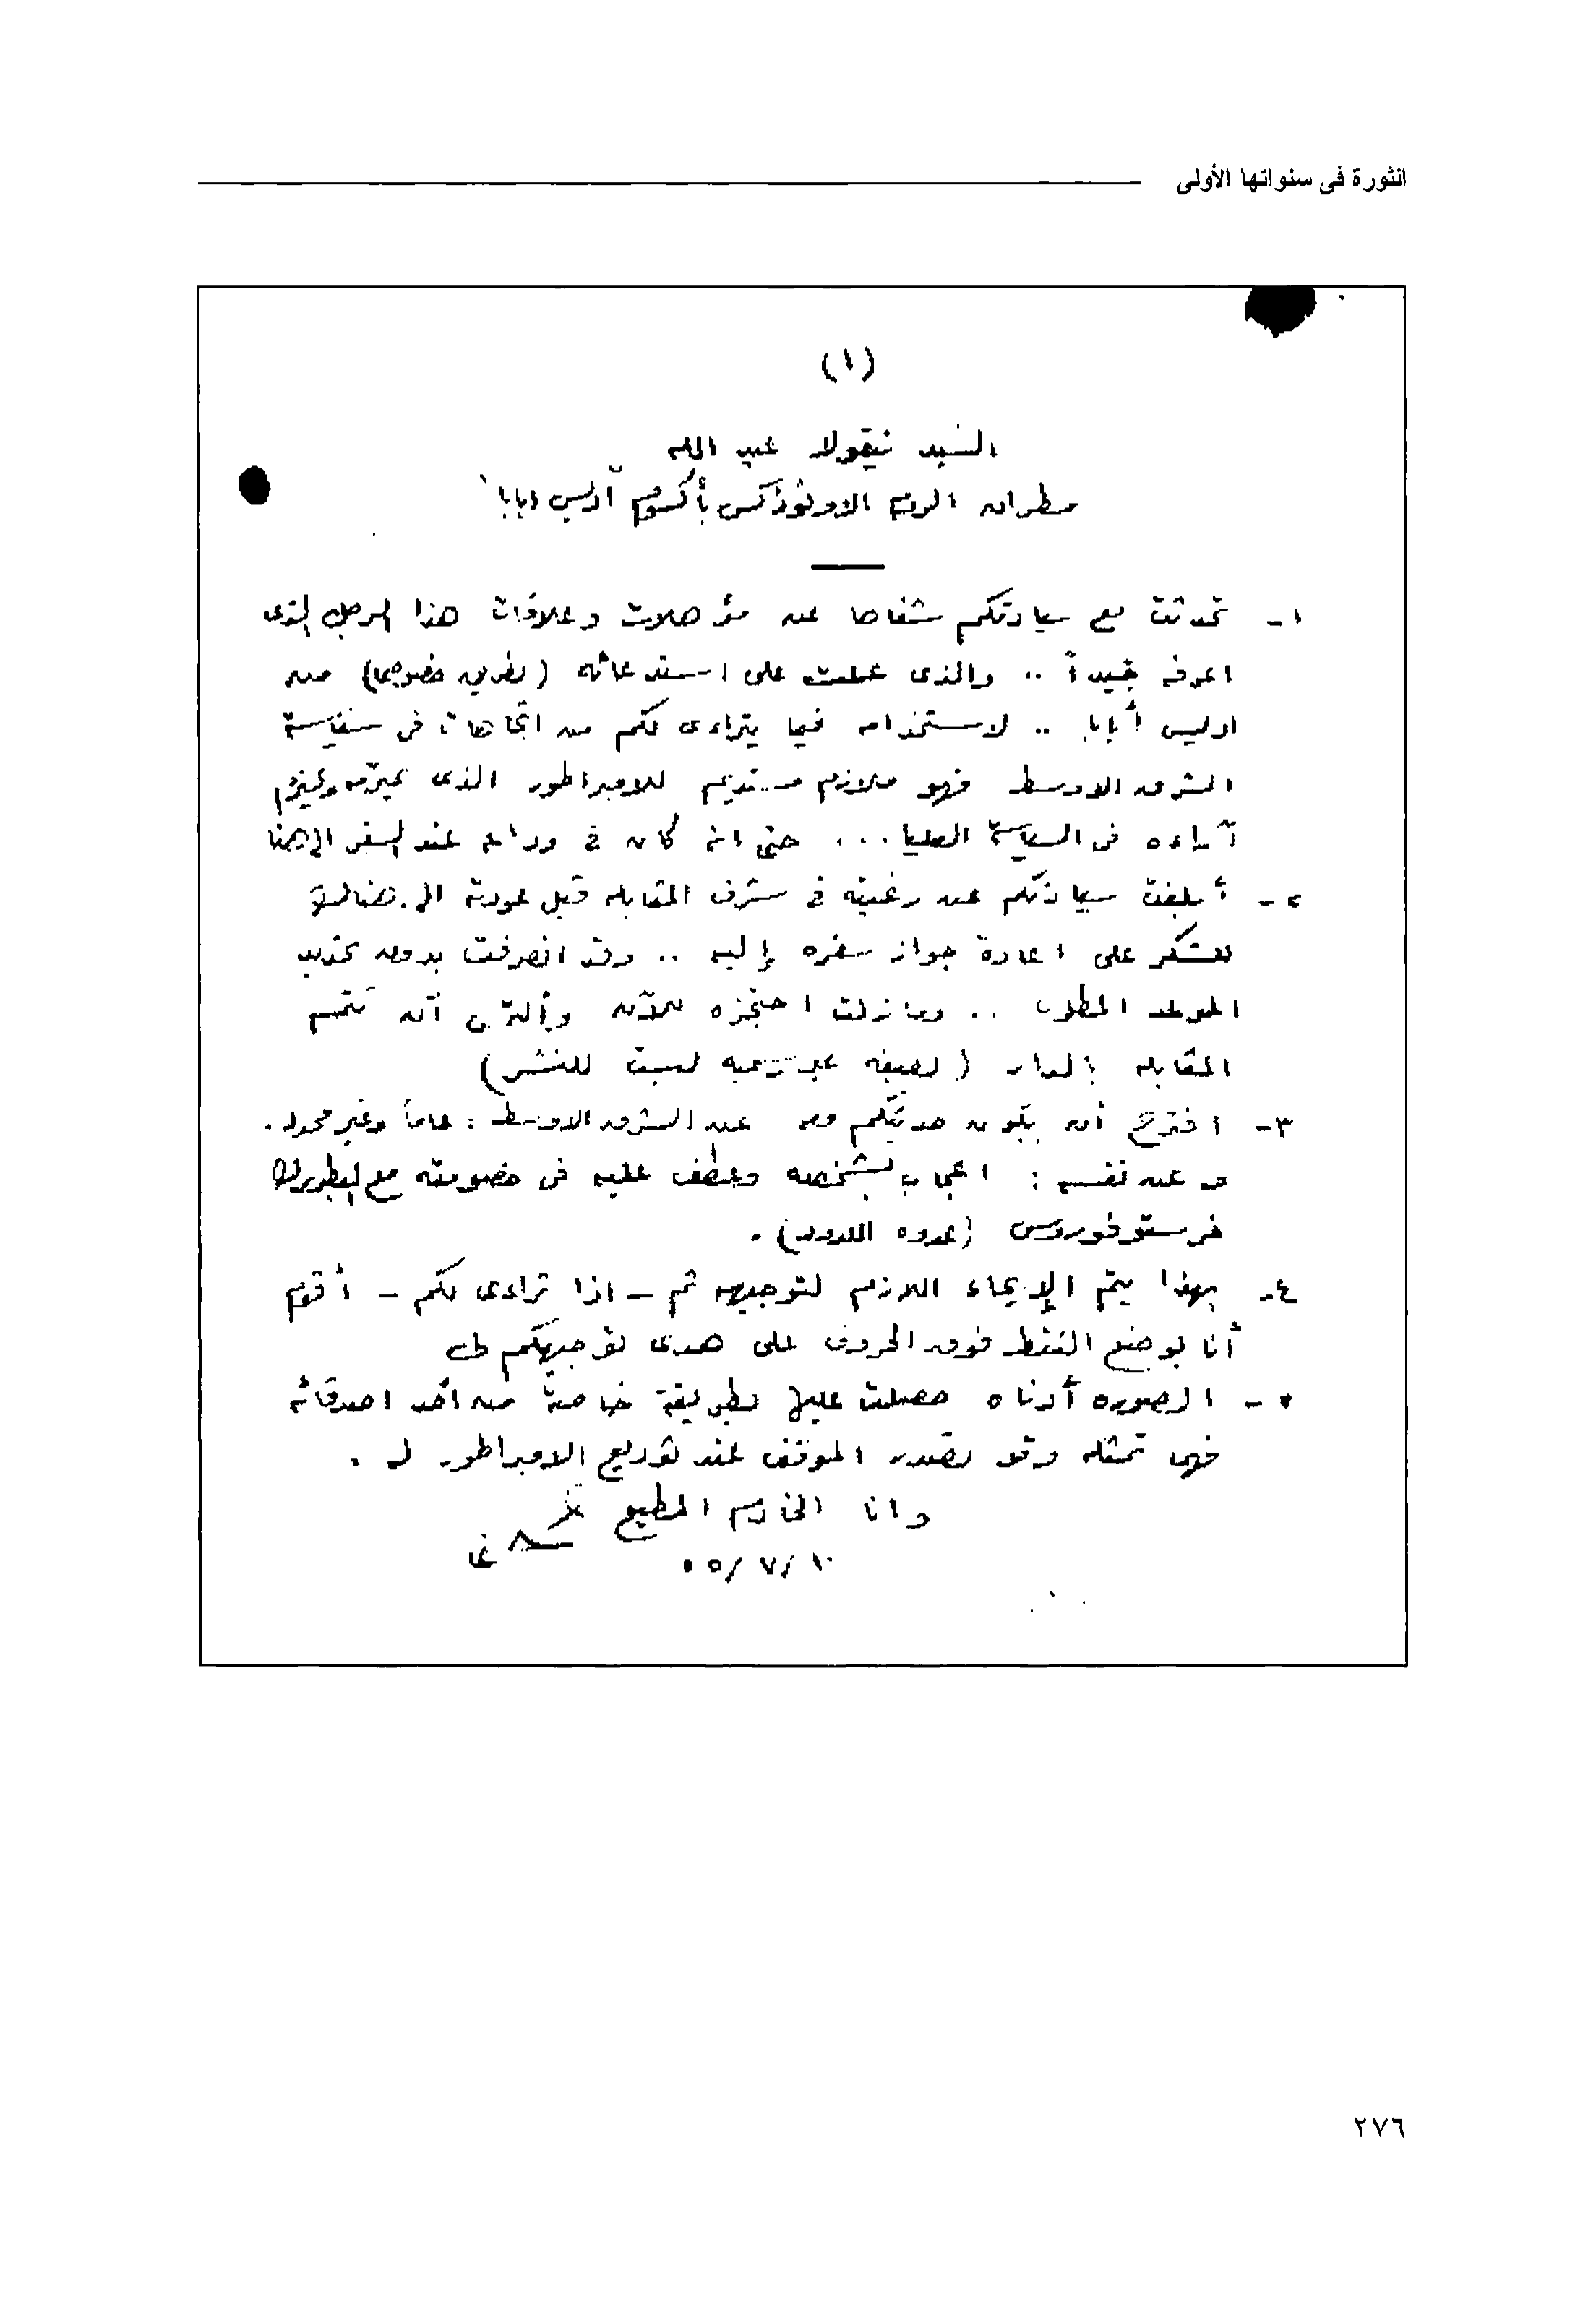 الثورة فى سنواتها الأولى
(١)
السيد نيقولا عبد الله
مطران الروم الاورثوذكس بأكسوم اديس ابابا
١- تحدثت مع سيادتكم شفاها عن مؤهلات وعلاقات هذا الرجل الذى
اعرفه جيداً .. والذى عملت على استدعائه (بطريق خصوصى) من
اديس أبابا .. لاستخدامه فيما يتراءى لكم من اتجاهات فى سياسة
الشرق الاوسط فهو ملازم مستديم للامبراطور الذى يحترمه
آراءه فى السياسة العليا ... حتى انه كان فى وداعه عند السفر الى هنا
٢- أبلغت سيادتكم عن رغبته فى شرف المقابله قبل عودته الى هناك
للشكر على اعادة جواز سفره إليه .. وقد انصرفت بدون تحديد
الموعد المطلوب .. وما زلت احتجزه للآن وألتمس أن تتم
المقابله بالدار (بصفه غير رسميه ليست للنشر)
٣- اقترح أن يكون حديثكم معه عن الشرق الاوسط : عاماً وغير محدد .
و عن نفسه : اعجاب بشخصه وعطف عليه فى خصومته مع البطريرك
خرستوفورس (عدوه اللدود) .
٤- بهذا يتم الإيحاء اللازم لتوجيهه ثم – اذا تراءى لكم – أقوم
أنا بوضع النقط فوق الحروف على هدى توجيهكم
٥- الصوره أدناه حصلت عليها بطريقة خاصة من أحد اصدقائه
فهى تمثله وقد تصدر الموقف عند توديع الامبراطور له .
وانا الخادم المطيع
١٠/٧/٥٥
٢٧٦